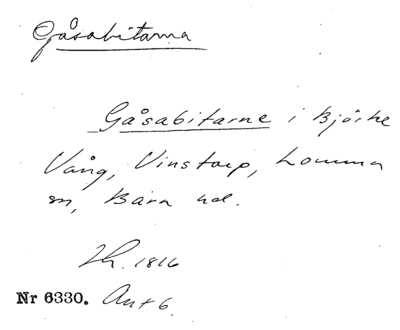 Gåsabitarna
Gåsabitarne i Bjärhe
Vång, Vinstorp, Lomma
sn, Bara hd.
Lh. 1816
Nr 6330. Ant 6.